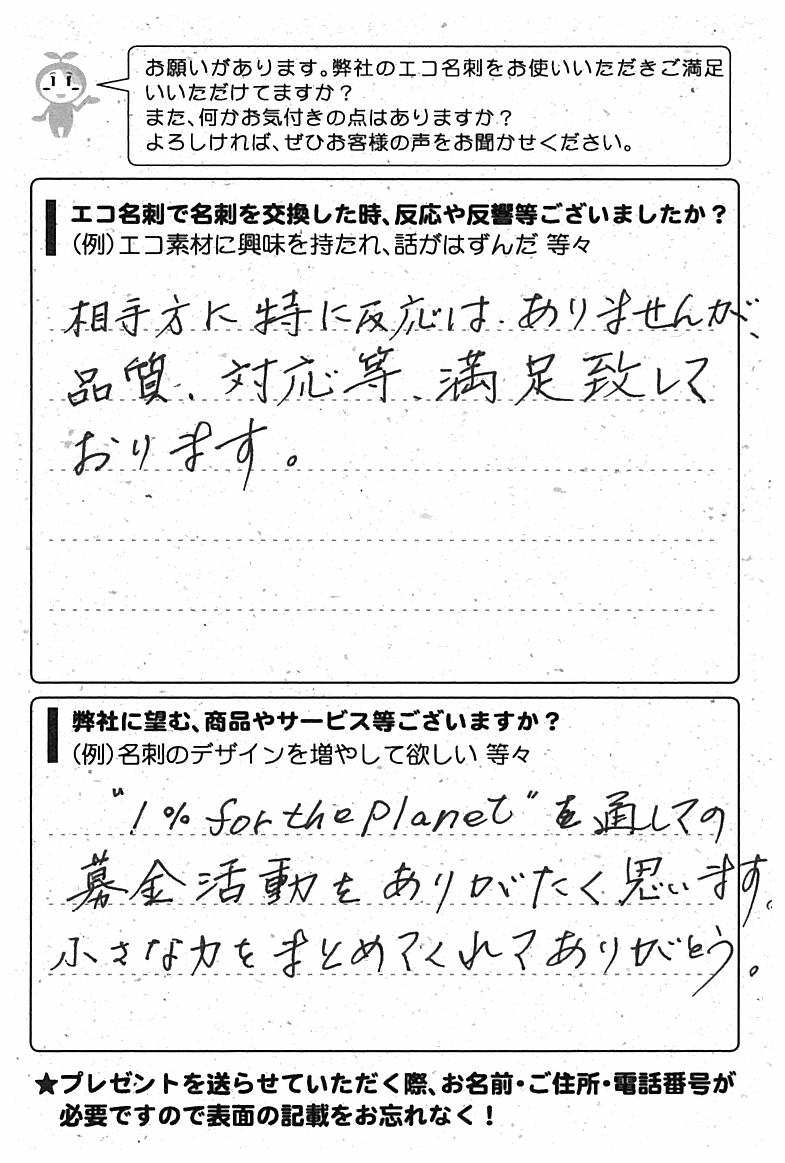 お願いがあります。弊社のエコ名刺をお使いいただきご満足
いいただけてますか？
また、何かお気付きの点はありますか？
よろしければ、ぜひお客様の声をお聞かせください。
エコ名刺で名刺を交換した時、反応や反響等ございましたか？
（例）エコ素材に興味を持たれ、話がはずんだ 等々
相手方に特に反応は、ありませんが、
品質、対応等、満足致して
おります。
弊社に望む、商品やサービス等ございますか？
（例）名刺のデザインを増やして欲しい 等々
“1% for the planet”を通しての
募金活動をありがたく思います。
小さな力をまとめてくれてありがとう。
★プレゼントを送らせていただく際、お名前・ご住所・電話番号が
必要ですので表面の記載をお忘れなく！